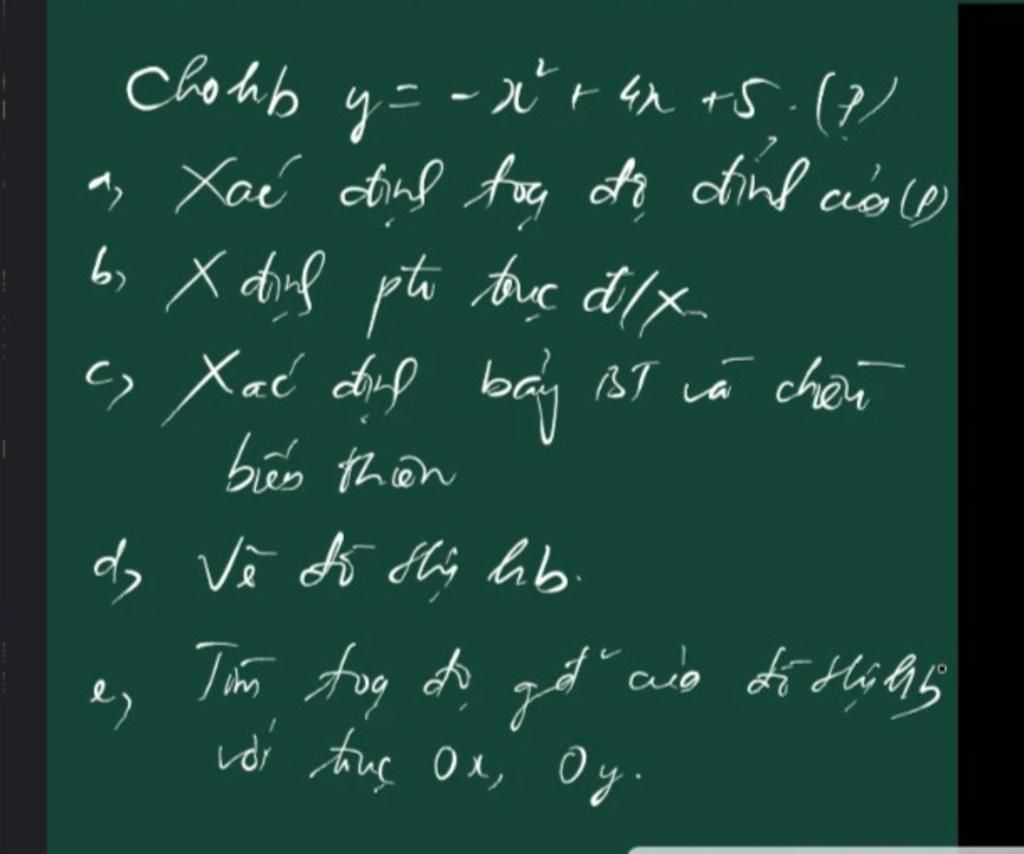 Cho hb y = -x² + 4x + 5. (P)
a, Xác định toạ độ đỉnh của (P)
b, X định ptr trục đ/x
c, Xác định bảng BT và chiều
biến thiên
d, Vẽ đồ thị hb.
e, Tìm toạ độ gđ² của đồ thị hb
với trục Ox, Oy.